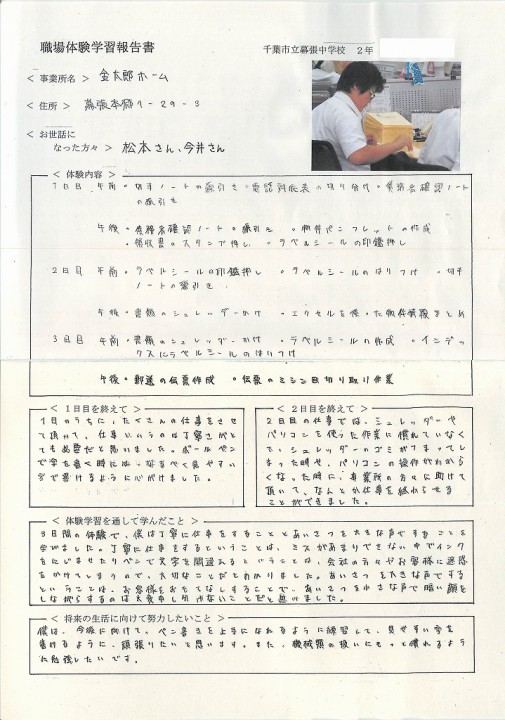 職場体験学習報告書
千葉市立幕張中学校 2年
< 事業所名 > 金太郎ホーム
< 住所 > 幕張本郷1-29-3
< お世話に
なった方々 > 松本さん、今井さん
< 体験内容 >
1日目 午前・切手ノートの索引き・電話対応表の切り分け・業務名確認ノート
の索引き
午後・業務名確認ノート・索引き ・物件パンフレットの作成
・領収書のスタンプ押し ・ラベルシールの印鑑押し
2日目 午前・ラベルシールの印鑑押し ・ラベルシールのはりつけ ・切手
ノートの索引き
午後・書類のシュレッダーかけ ・エクセルを使った物件情報まとめ
3日目 午前・書類のシュレッダーかけ ・ラベルシールの作成 ・インデッ
クスにラベルシールのはりつけ
午後・郵送の伝票作成 ・伝票のミシン目切り取り作業
< 1日目を終えて >
1日のうちに、たくさんの仕事をさせ
て頂いて、仕事というのは丁寧さがと
ても必要だと思いました。ボールペン
で字を書く時には、なるべく見やすい
字で書けるように心がけました。
< 2日目を終えて >
2日目の仕事では、シュレッダーや
パソコンを使った作業に慣れていなく
て、シュレッダーのゴミがつまってし
まった時や、パソコンの操作がわから
なくなった時に、事業所の方々に助けて
頂いて、なんとか仕事を終わらせる
ことができました。
< 体験学習を通して学んだこと >
3日間の体験で、僕は丁寧に仕事をすることとあいさつを大きな声ですることを
学びました。丁寧に仕事をするということは、ミスがあまりできない中でインク
をにじませたりペンで文字を間違えるということは、会社の方々やお客様に迷惑
をかけてしまうので、大切なことだとわかりました。あいさつを大きな声でする
ということは、お客様をおもてなしすることで、あいさつを小さな声で暗い顔を
しながらするのは大変申し訳ないことだと思いました。
< 将来の生活に向けて努力したいこと >
僕は、今後に向けて、ペン書きを上手になれるように練習して、見やすい字を
書けるように、頑張りたいと思います。また、機械類の扱いにもっと慣れるよう
に勉強したいです。